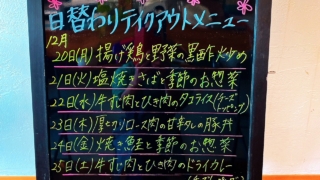 日替わりテイクアウトメニュー
12月
20日(月)揚げ鶏と野菜の黒酢炒め
21日(火)塩焼きさばと季節のお惣菜
22日(水)牛すじ肉とひき肉のタコライス(チーズトッピング)
23日(木)厚切りロース肉の甘辛ダレの豚丼
24日(金)焼き鮭と季節のお惣菜
25日(土)牛すじ肉とひき肉のドライカレー